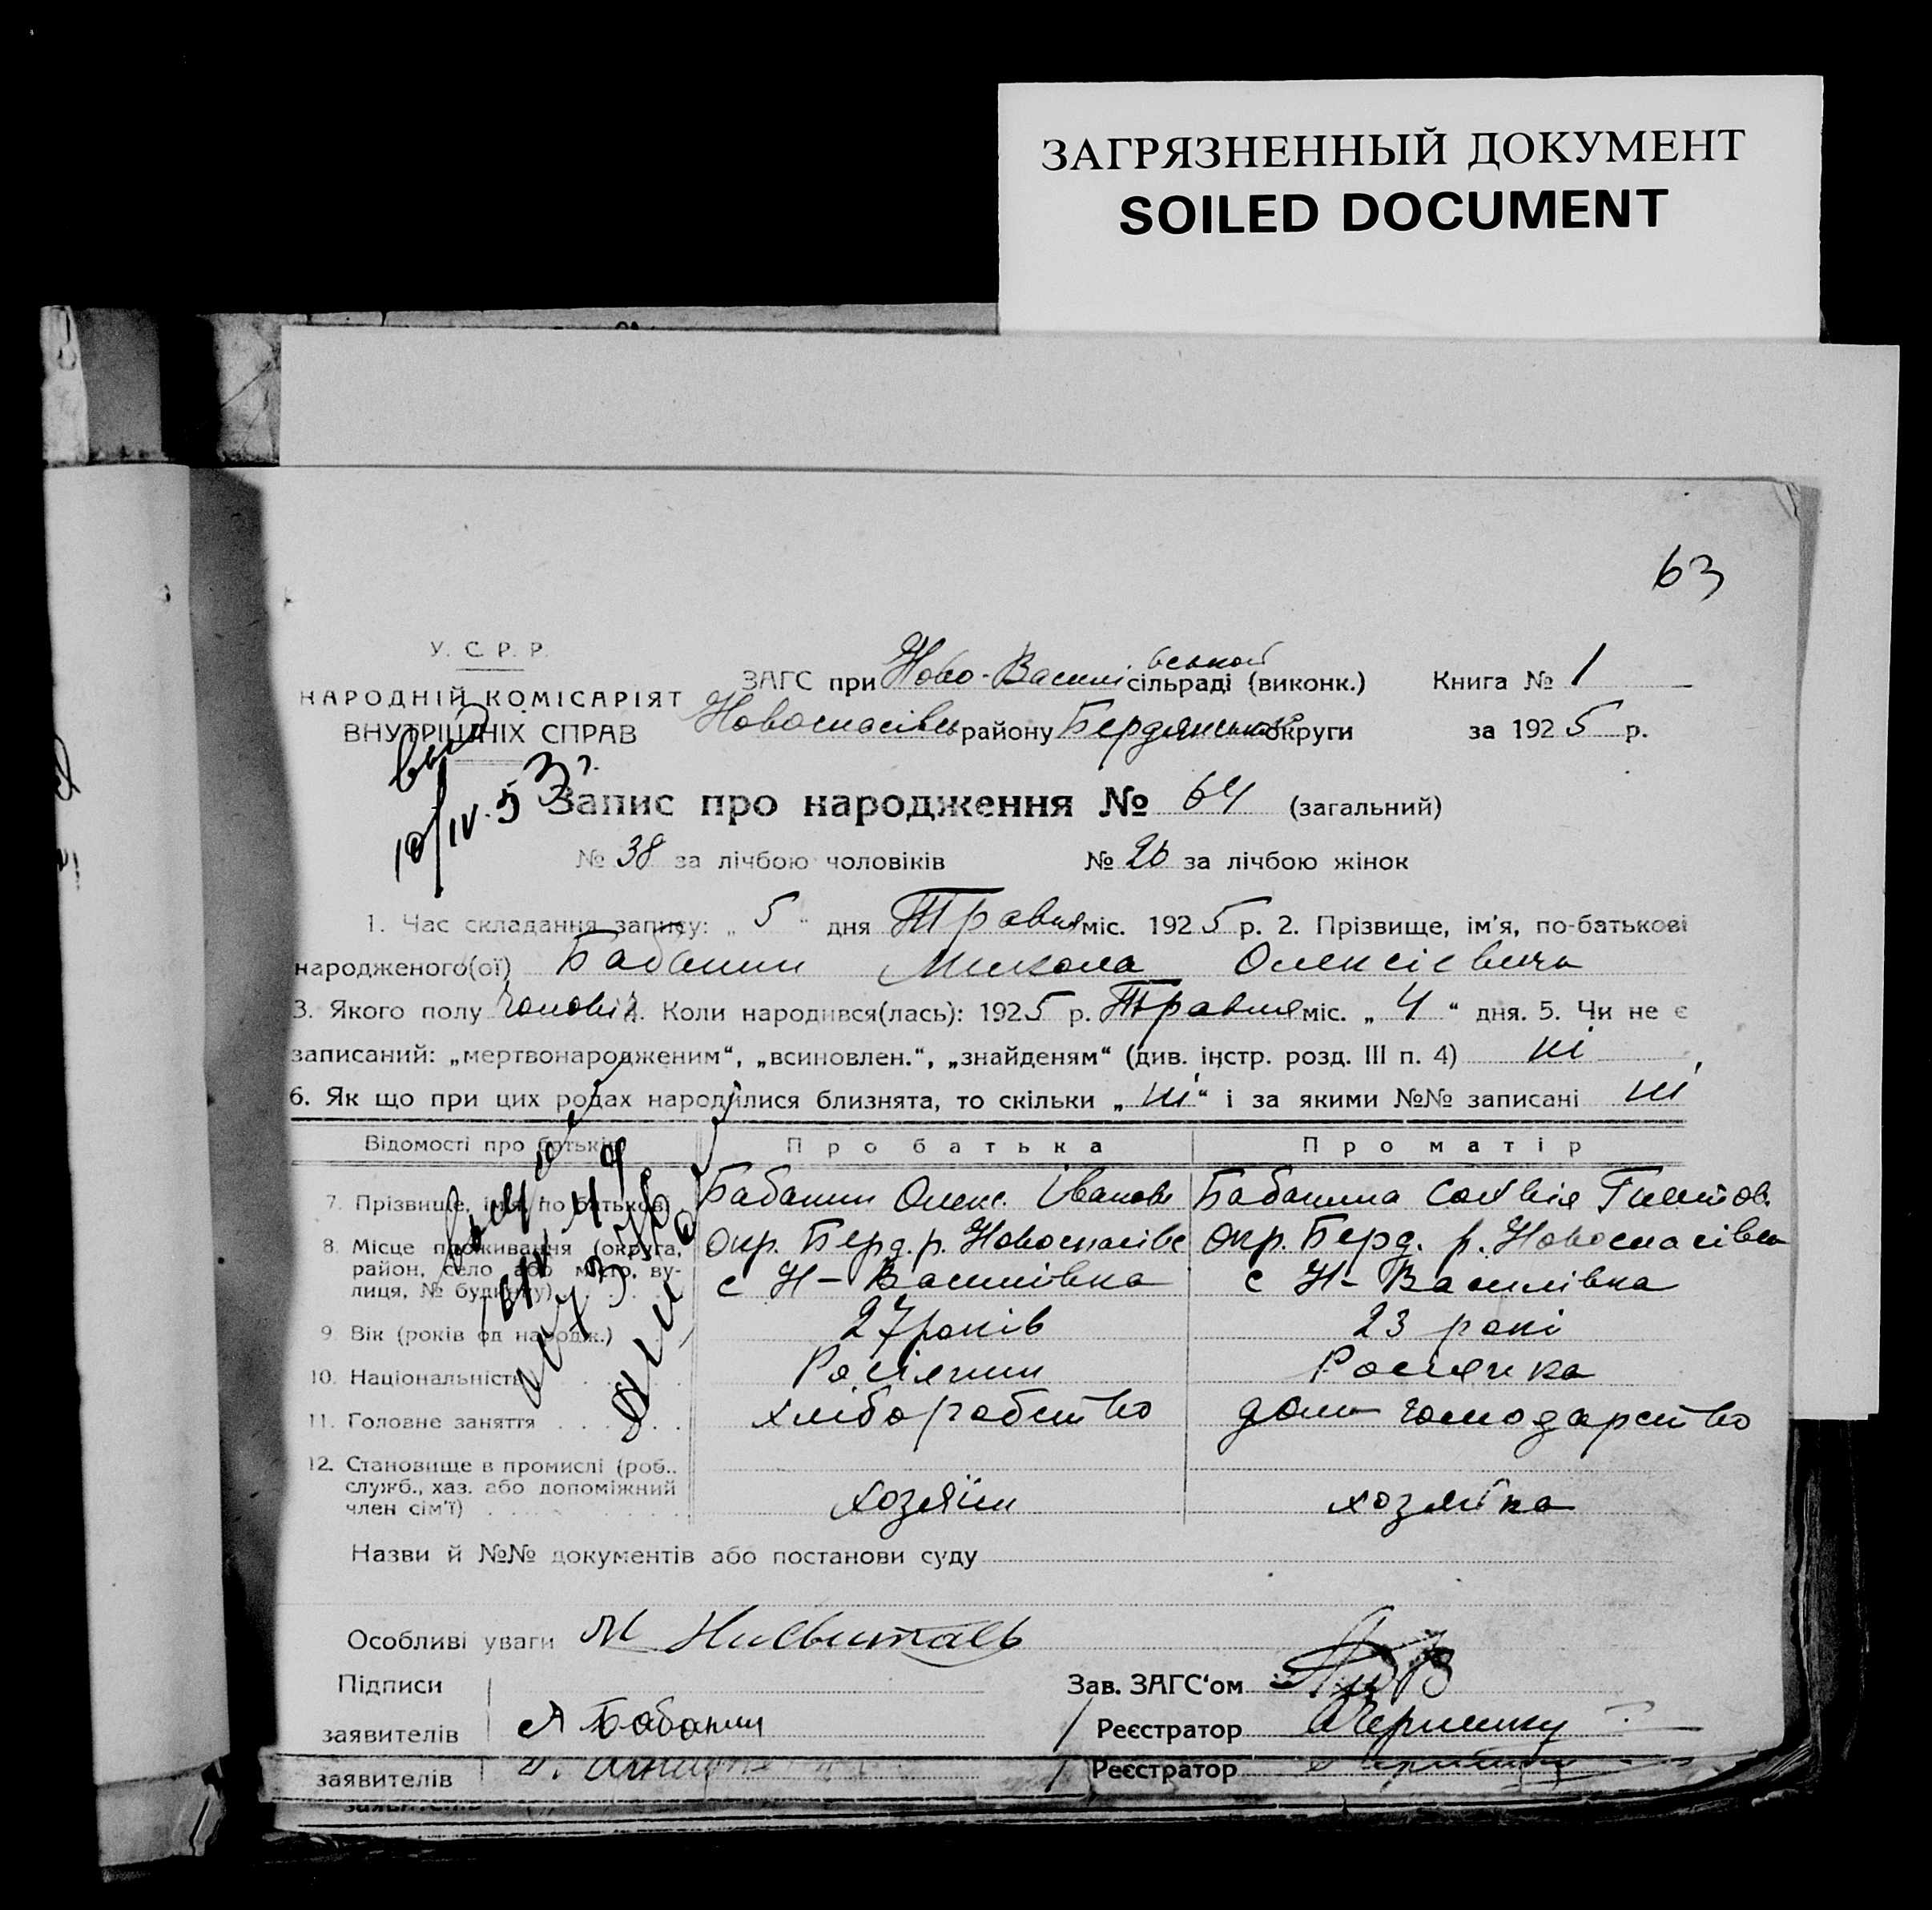 ЗАГРЯЗНЕННЫЙ ДОКУМЕНТ
SOILED DOCUMENT
63
У. С. Р. Р.
НАРОДНІЙ КОМІСАРІЯТ
ВНУТРІШНІХ СПРАВ
ЗАГС при Ново-Василівської сільраді (виконк.) Книга № 1
Новоспасівськ району Бердянської округи за 1925 р.
10/IV. 53 г.
Запис про народження № 64 (загальний)
№ 38 за лічбою чоловіків № 26 за лічбою жінок
1. Час складання запису: „ 5 “ дня Травня міс. 1925 р. 2. Прізвище, ім'я, по-батькові
народженого(ої) Бабанин Микола Олексієвичь
3. Якого полу Чоловік 4. Коли народився(лась): 1925 р. Травня міс. „ 4 “ дня. 5. Чи не є
записаний: „мертвонародженим“, „всиновлен.“, „знайденям“ (див. інстр. розд. III п. 4) ні
6. Як що при цих родах народилися близнята, то скільки „ ні “ і за якими №№ записані ні
Відомості про батьків Про батька Про матір
7. Прізвище, ім'я, по батькові Бабанин Олекс. Іванов Бабанина
8. Місце проживання (округа, район, село або місто, вулиця, № будинку) Окр. Берд. р. Новоспасівс Окр. Берд. р. Новоспасівсь
с Н-Василівка с Н-Василівка
9. Вік (років од народж.) 27 років 23 рокі
10. Національність Росіянин Росіянка
11. Головне заняття хліборобство дом господарство
12. Становище в промислі (роб., служб., хаз. або допоміжний член сім'ї) хозяїн хозяйка
Назви й №№ документів або постанови суду
Особливі уваги М
Підписи Зав. ЗАГС'ом
заявителів А Бабанин Реєстратор
заявителів Реєстратор
заявителів